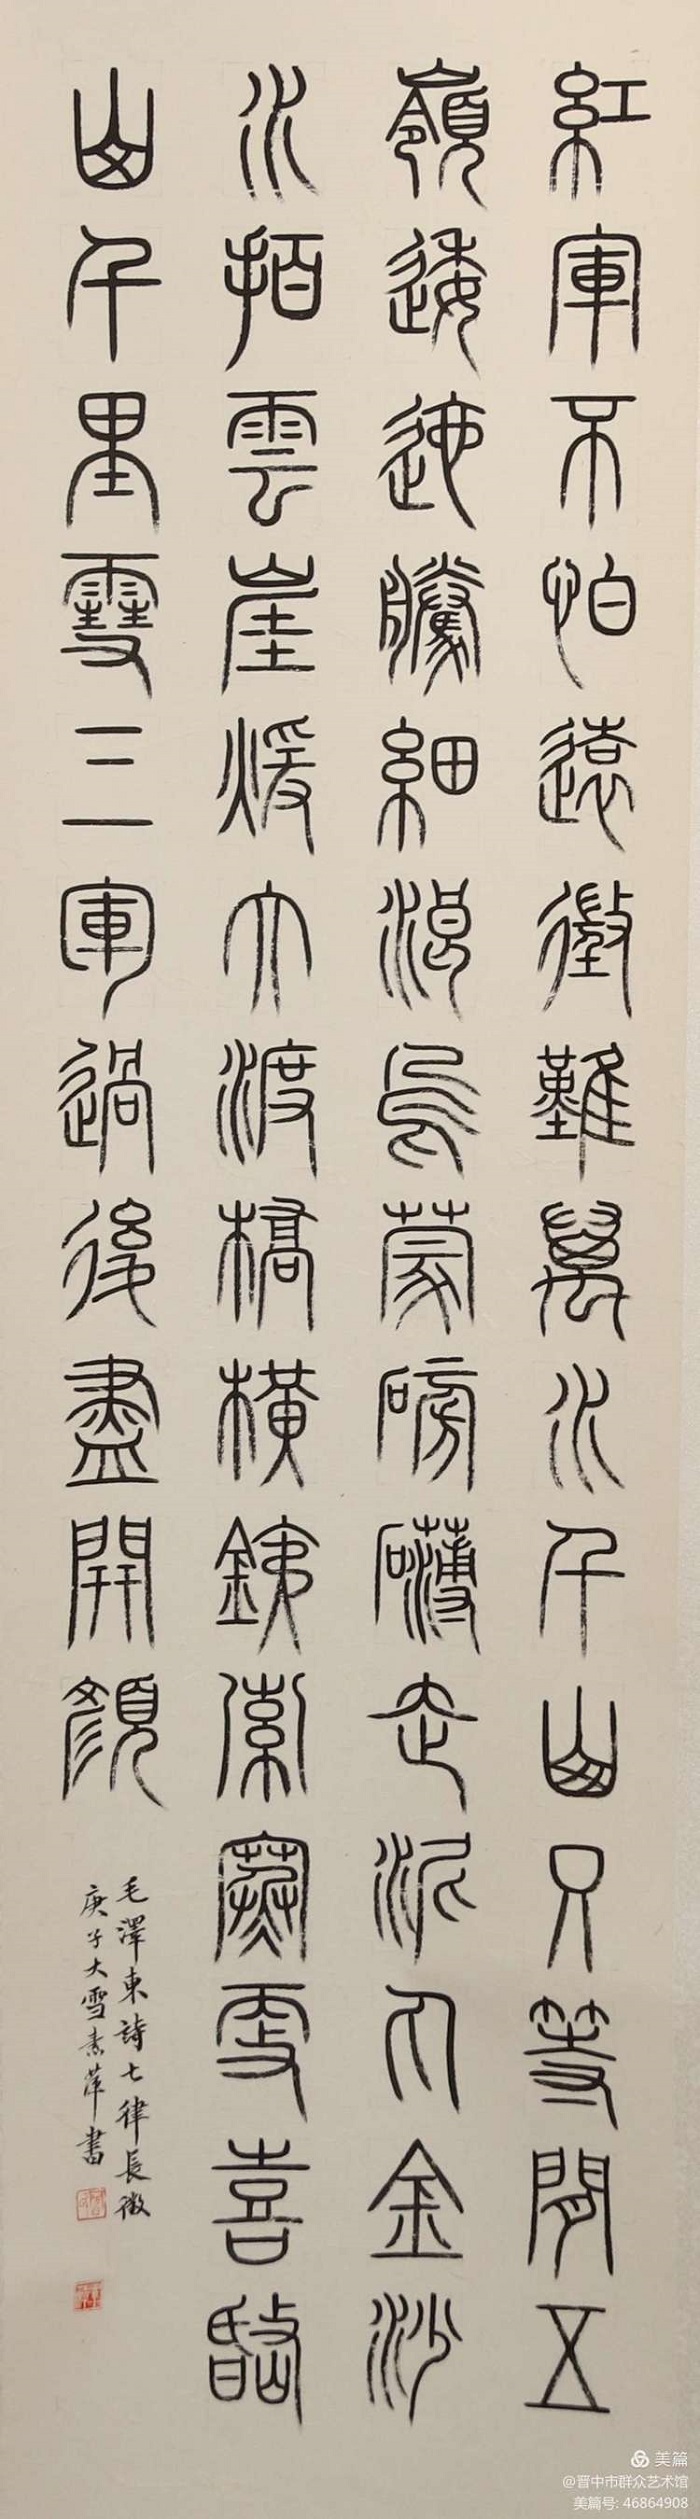 紅軍不怕遠徵難萬水千山只等閒五
嶺逶迤騰細浪烏蒙磅礴走泥丸金沙
水拍雲崖煖大渡橋橫銕索寒更喜岷
山千里雪三軍過後盡開顏
毛澤東詩七律長徵
庚子大雪素萍書
美篇
@晋中市群众艺术馆
美篇号: 46864908